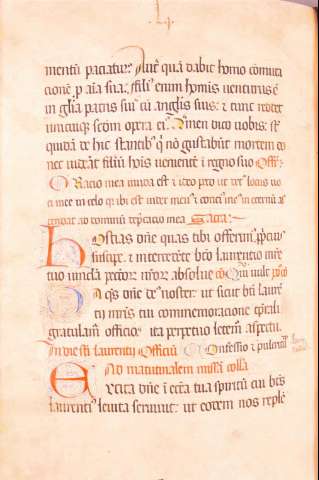 mentū paciatur? Aut̄ quā dabit homo cōmuta
cionē p aīa sua? filiꝰ enim hoīnis uenturus ē
in glīa patris sui cū angl̄is suis: ⁊ tunc reddet
unicuiqꝫ scdm opera eiꝰ. Amen dico uobis: st̄
quidā de hic stantibꝰ q̄ nō gustabūt mortem do
nec uideāt filiū hoīs uenientē ī regno suo Off?
Oracio mea munda est ⁊ ideo peto ut det᷑ locus uo
ci mee in celo q̄ ibi est iudex meus ⁊ consciꝰ meꝰ in excelsis as
cendat ad dominū dep̄catio mea Sacra:
Hostias dn̄e quas tibi offerimꝰ ꝓpiciꝰ
suscipe. ⁊ intercedēte bt̄o laurentio mr̄e
tuo uincla pecc̄or nr̄or absolue Cō Qui uult
Da q̄s dn̄e deꝰ noster. ut sicut bt̄i laurē
tii mr̄is tui commemoracione tp̄rali
gratulam̄ officio. ita perpetuo letem̄ aspectu.
In die sc̄i laurentii Officiū Confessio ⁊ pulcritꝰ
Ad matutinalem missā coll̄a
Excita dn̄e ī ecc̄ia tua spiritū cui bt̄s
laurentiꝰ leuita seruiuit: ut eodem nos reple